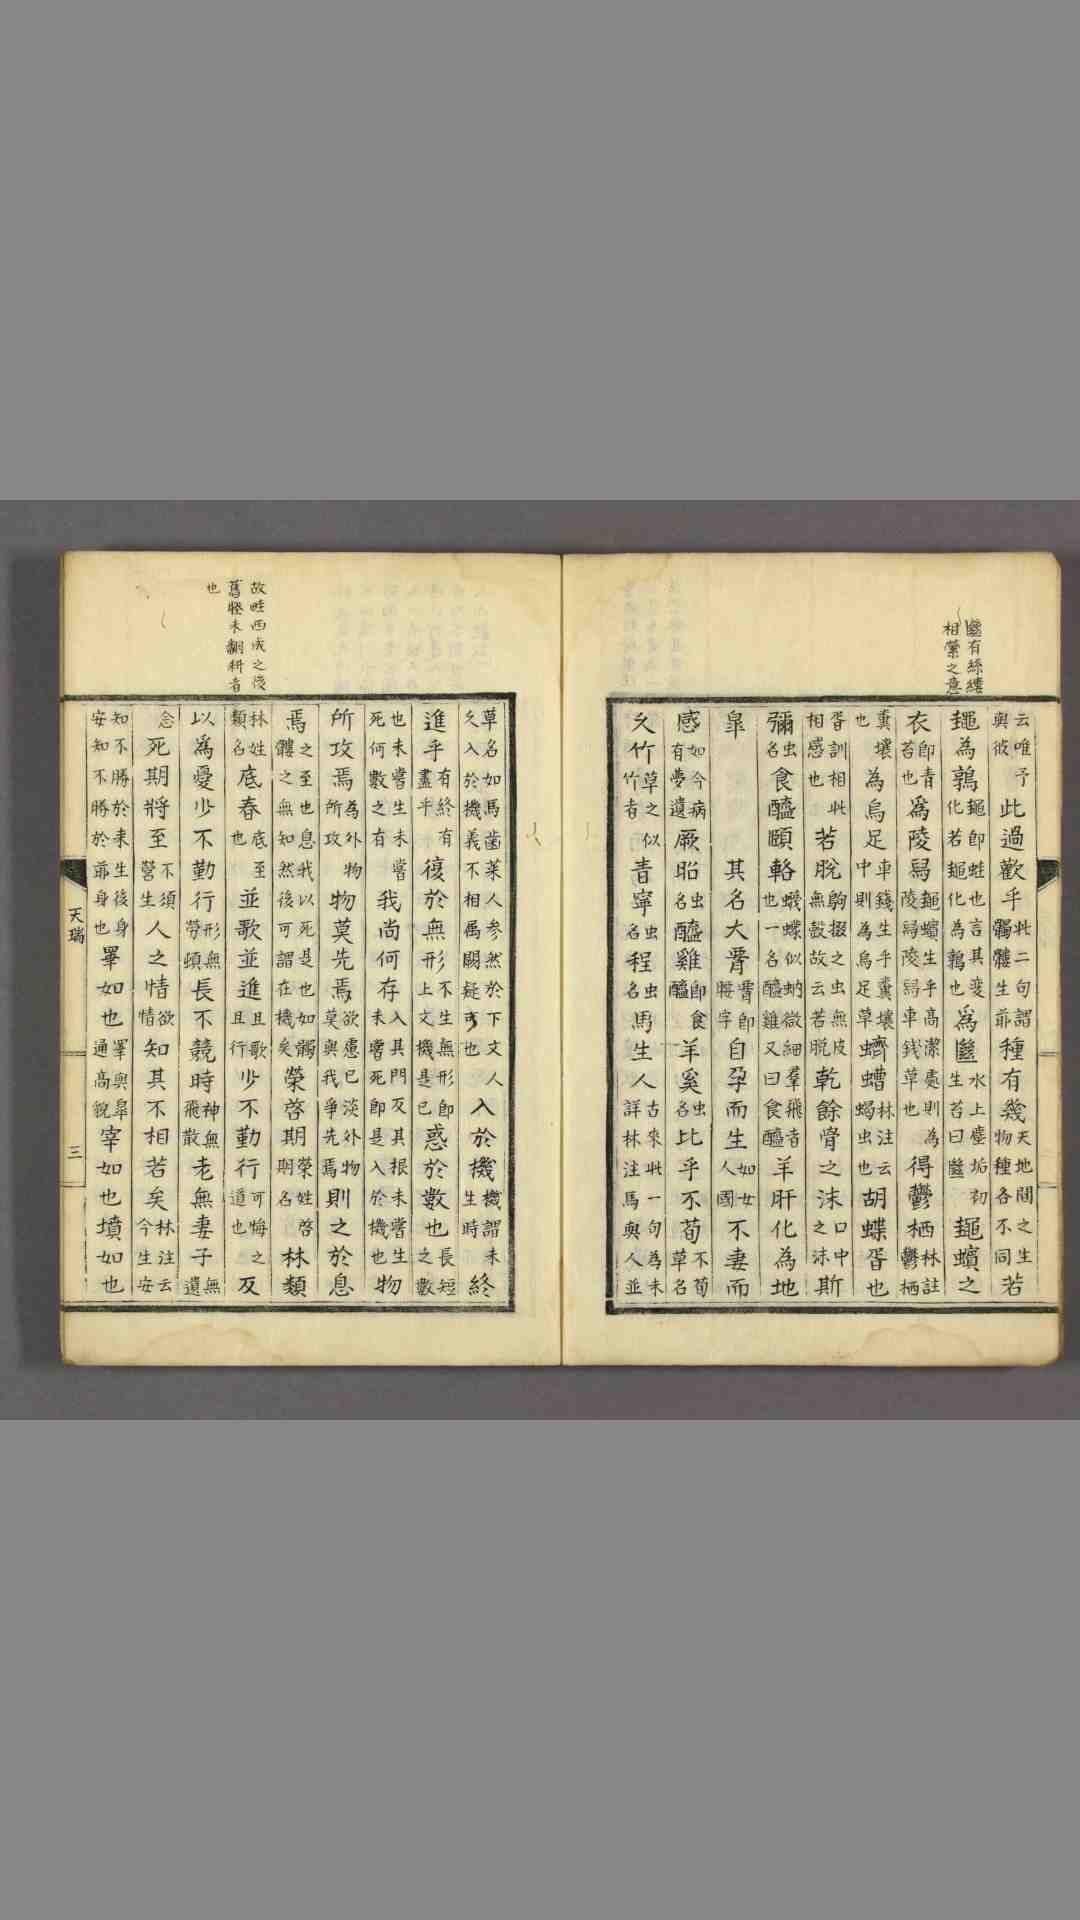 有絲縷
相縈之意
云唯予與彼此過歡乎此二句謂髑髏生爺種有幾天地間之生物種各不同若
䵷為鶉䵷即蛙也言其変化若䵷化為鶉也為㡭水上塵垢初生苔曰㡭䵷蠙之
衣即青苔也為陵舄䵷蠙生乎高潔處則為陵舄陵舄車錢草也得鬱栖林註鬱栖
糞壤也為烏足車錢生乎糞壤中則為烏足草蠐螬林注云蝎虫也胡蝶胥也
胥訓相此相感也若脫駒掇之虫無皮無殼故云若脫乾餘骨之沫口中之沫斯
彌虫名食醯頤輅蠛蠓似蚋微細羣飛者也一名醯雞又曰食醯羊肝化為地
皐其名大胥胥即腰字自孕而生如女人國不妻而
感如今病有夢遺厥昭虫名醯雞即食醯羊奚虫名比乎不荀不荀草名
久竹草之似竹者青寧虫名程虫名馬生人古來此一句為未詳林注馬與人並
故畦西成之後
舊畦未翻耕者
也
草名如馬齒菜人参然於下文人久入於機義不相属闕疑可也入於機機謂未生時終
進乎有終有盡乎復於無形不生無形即上文機是已惑於數也長短之數
也未嘗生未嘗死何數之有我尚何存入其門反其根未嘗生未嘗死即是入於機也物
所攻焉為外物所攻物莫先焉欲慮已淡外物莫與我爭先焉則之於息
焉之至也息我以死是也如髑髏之無知然後可謂在機矣榮啓期榮姓啓期名林類
林姓類名底春底至也並歌並進且歌且行少不勤行可悔之道也及
以為憂少不勤行形無勞頓長不競時神無飛散老無妻子無遺
念死期將至不須營生人之情欲情知其不相若矣林注云今生安
知不勝於來生後身安知不勝於爺身也睪如也澤與皐通高貌宰如也墳如也
天瑞
三